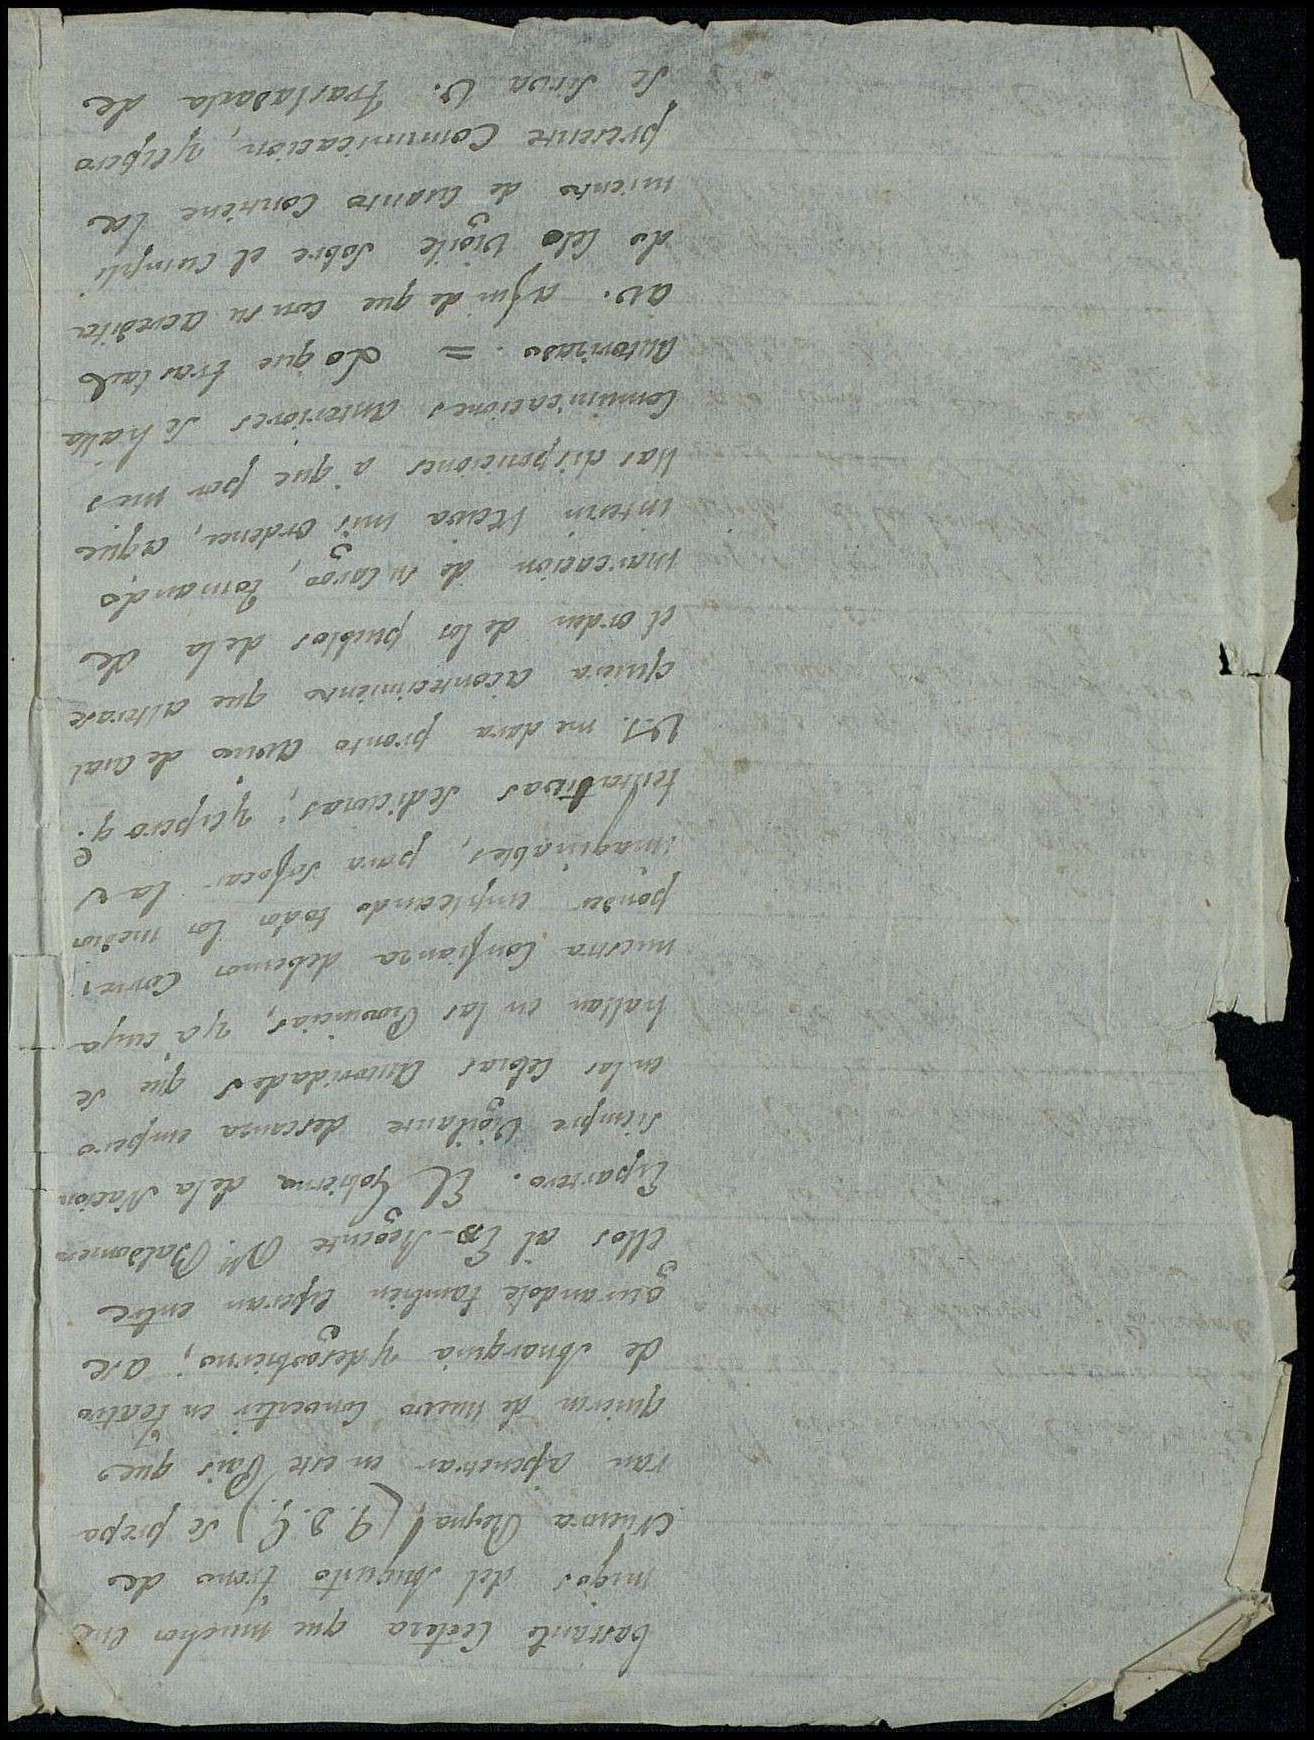 bastante Certeza que muchos ene
migos del Augusto trono de
Nuestra Reyna (q. D. G.) se prepa
ran apenetrar en este Pais que
quieren de nuevo Convertir en teatro
de Anarquia y desgobierno; ase
gurandole tambien esperan entre
ellos al Ex-Regente Dn. Baldomero
Espartero. El Gobierno de la Nacion
siempre Vigilante descansa empero
en las Celosas Autoridades que se
hallan en las Provincias, y a cuya
nuestra Confianza debemos Corres
ponder empleando todos los medios
imaginables, para sofocar las
tentativas Sediciosas; y espero q.e
V.S. me dara pronto aviso de cual
quiera acontecimiento que alterase
el orden de los pueblos de la de
marcacion de su Cargo, tomando,
interin reciva mis ordenes, aque
llas disposiciones a que por mis
Comunicaciones anteriores se halla
Autorizado. = Lo que traslado
aV. afin de que con su acredita
do Celo Vigile sobre el Cumpli
miento de Cuanto Contiene la
presente Comunicacion, y espero
se sirva V. trasladarla de